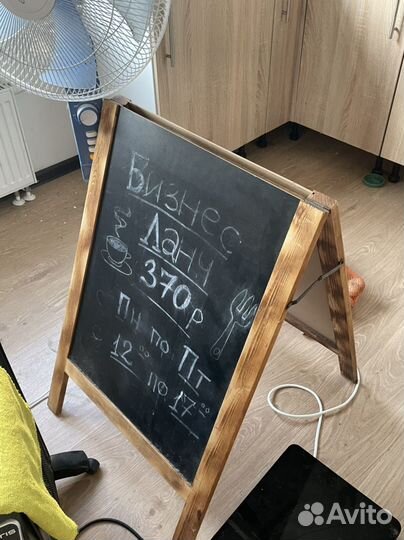 Бизнес
Ланч
370р
Пн по Пт
12:00 по 17:00
Avito